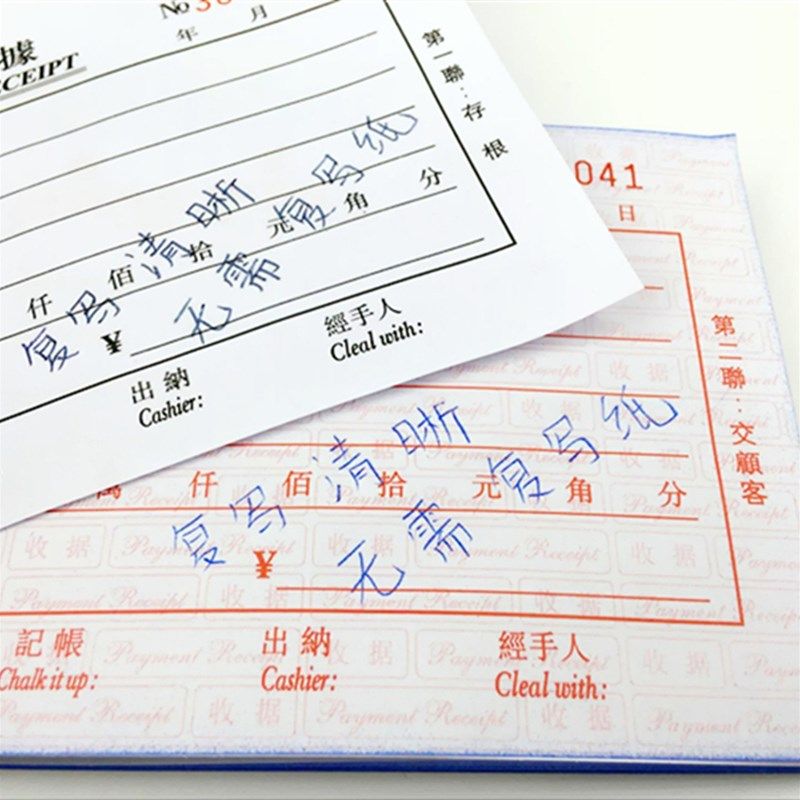 No 30
據
年 月
CEIPT
第一聯：存根
仟 佰 拾 元 角 分
复写清晰
无需复写纸
¥
經手人
Cleal with:
出納
Cashier:
041
日
第二聯：交顧客
萬 仟 佰 拾 元 角 分
复写清晰
无需复写纸
¥
記帳 出納 經手人
Chalk it up: Cashier: Cleal with:
收据 Payment Receipt